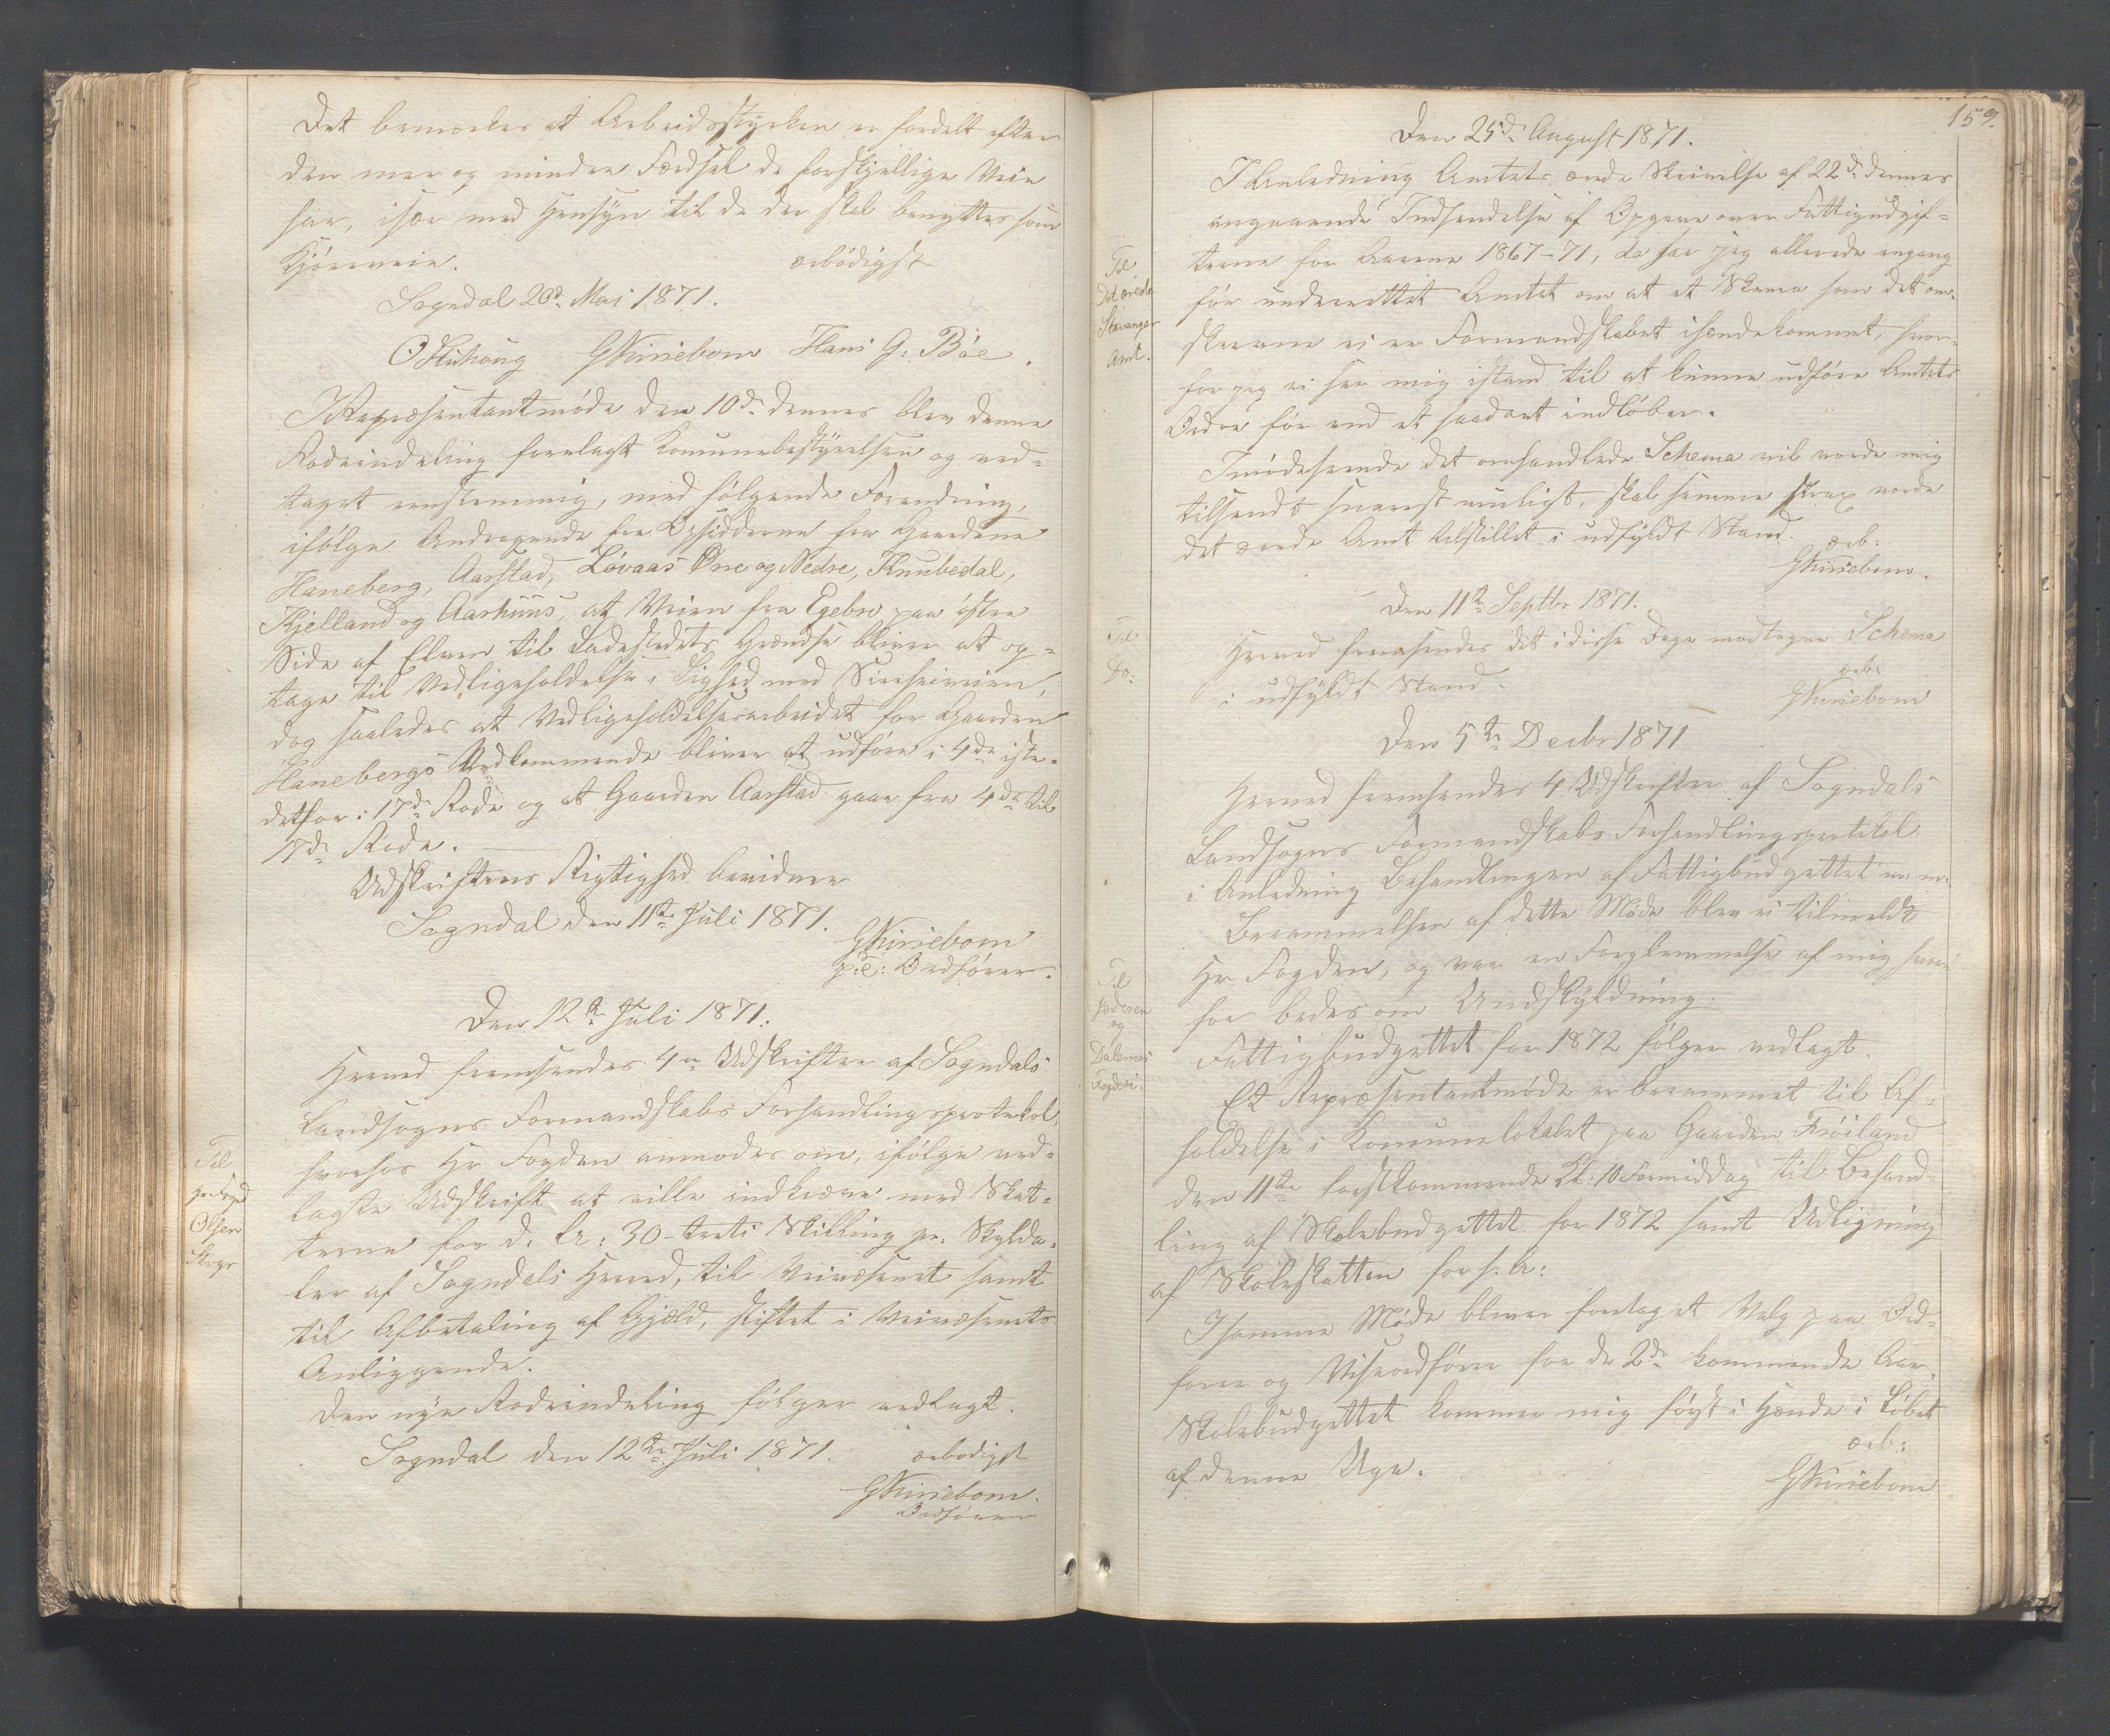 Det bemærkes at Arbeidsstyrken er fordelt efter
den mer og mindre Færdsel de forskjellige Veie
har, især med Hensyn til de der skal benyttes som
Kjøreveie. ærbødigst
Sogndal 20d. Mai 1871.
Hans G: Böe.
I Repræsentantmöde den 10de dennes blev denne
Rodeinddeling forelagt Komunebestyrelsen og ved-
taget eenstemmig, med følgende Forandring,
ifølge Andragende fra Opsidderne fra Gaardene
Haneberg, Aarstad, Lövaas Övre og Nedre, Knubedal,
Kjelland og Aarhuus, at Veien fra Egebro paa östre
Side af Elven til Ladestedets Grændse bliver at op-
tage til Vedligeholdelse i Lighed med Sireheiveien,
dog saaledes at Vedligeholdelsesarbeidet for Gaarden
Hanebergs Vedkommende bliver at udføre i 4de iste-
detfor i 17de Rode og at Gaarden Aarstad gaar fra 4de til
17de Rode.
Udskriftens Rigtighed bevidner
Sogndal den 11te Juli 1871.
GKiriebom
p: t: Ordfører.
Den 12te Juli 1871.
Til
Hr Foged
Olsen
Herved fremsendes 4re Udskrifter af Sogndals
Landsogns Formandskabs Forhandlingsprotokol,
hvorhos Hr Fogden anmodes om, ifølge ved-
lagte Udskrift at ville indkræve med Skat-
terne for d. Ar: 30 - treti Skilling pr. Skylda-
ler af Sogndals Herred, til Veivæsenet samt
til Afbetaling af Gjæld, stiftet i Veivæsenets
Anliggende.
Den nye Rodeinddeling følger vedlagt.
Sogndal den 12te Juli 1871. ærbødigst
GKiriebom.
Ordfører
159.
Den 25de August 1871.
Til
Det ærede
Stavanger
Amt.
I Anledning Amtets ærede Skrivelse af 22d. dennes
angaaende Indsendelse af Opgave over Fattigudgif-
terne for Aarene 1867-71, da har jeg allerede engang
før underrettet Amtet om at et Skema som det om-
skrevne ei er Formandskabet ihændekommet, hvor-
for jeg ei ser mig istand til at kunne udføre Amtets
Ordre før end et saadant indløber.
Imødeseende det omhandlede Schema vil vorde mig
tilsendt snarest muligt, skal samme strax vorde
det ærede Amt tilstillet i udfyldt Stand. ærb:
GKiriebom.
Den 11te Septbr 1871.
Til
Do:
Herved fremsendes det i disse Dage modtagne Schema
i udfyldt Stand. ærb:
GKiriebom
Den 5te Decbr 1871
Til
Jæderen
og
Dalernes
Fogderi.
Herved fremsendes 4 Udskrifter af Sogndals
Landsogns Formandskabs Forhandlingsprotokol
i Anledning Behandlingen af Fattigbudgettet m. m.
Berammelsen af dette Møde blev ei tilmeldt
Hr Fogden, og var en Forglemmelse af mig hvor-
for bedes om Undskyldning.
Fattigbudgettet for 1872 følger vedlagt.
Et Repræsentantmøde er berammet til Af-
holdelse i Komunelokalet paa Gaarden Fröiland
den 11te førstkommende Kl: 10 Formiddag til Behand-
ling af Skolebudgettet for 1872 samt Udligning
af Skoleskatten for s. A:
I samme Møde bliver foretaget Valg paa Ord-
fører og Viseordfører for de 2de kommende Aar.
Skolebudgettet kommer mig først i Hænde i Løbet
af denne Uge. ærb:
GKiriebom